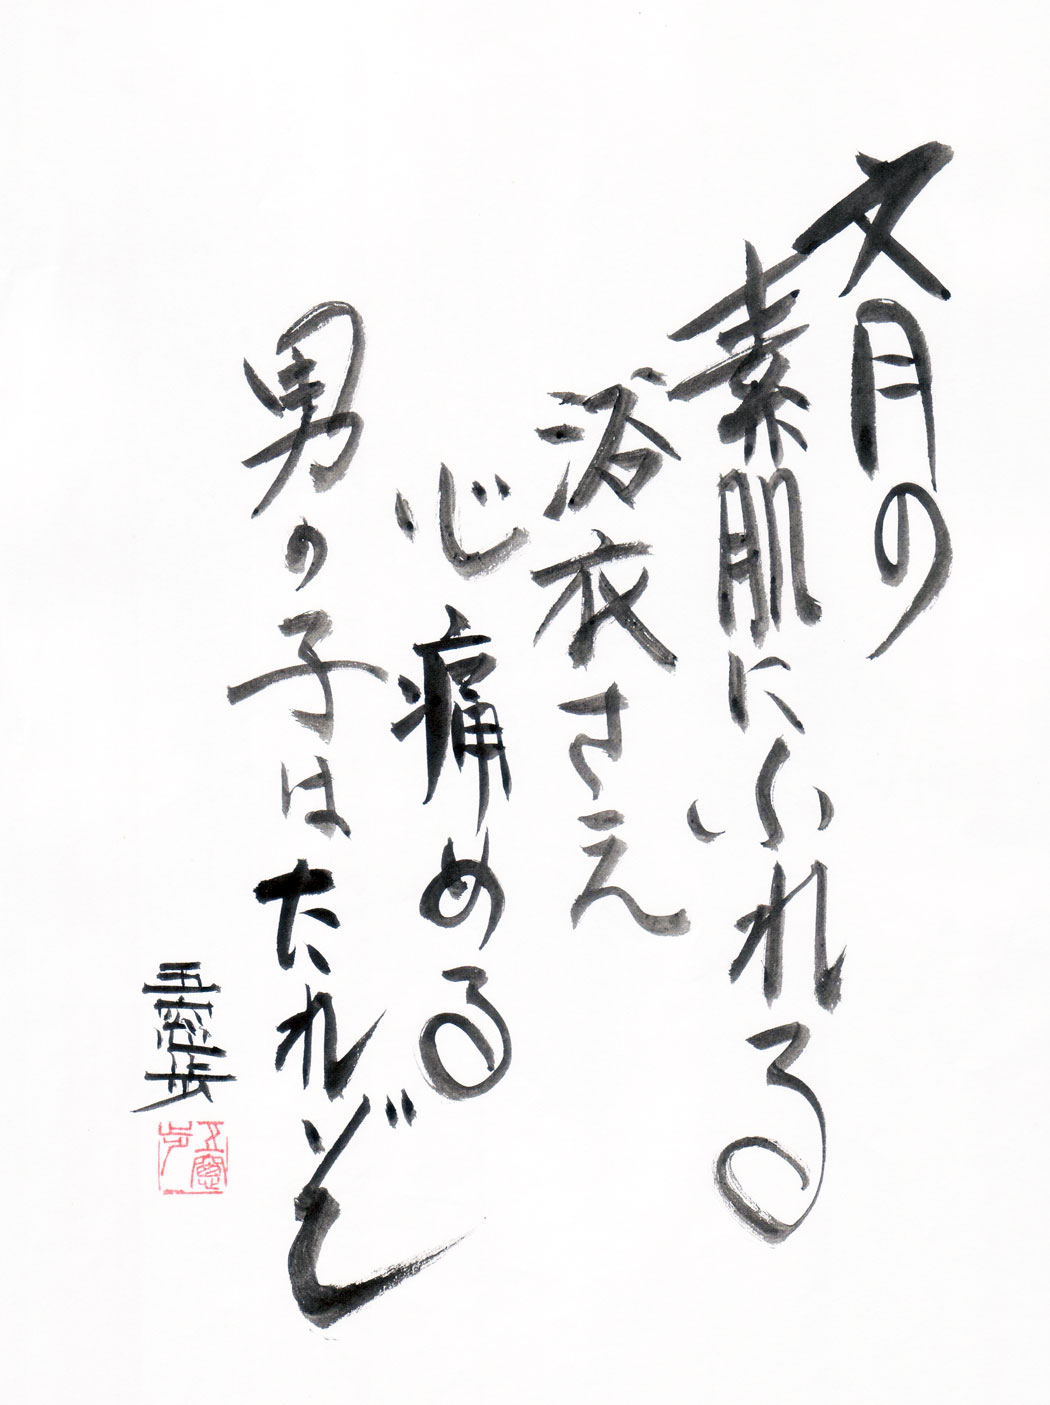 文月の
素肌にふれる
浴衣さえ
心痛める
男の子はたれぞ
五窓歩